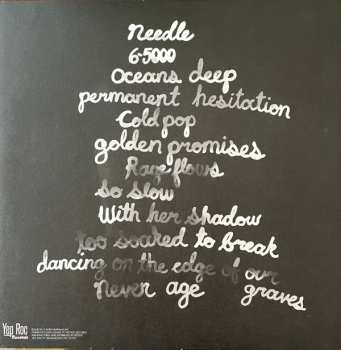 Needle
6-5000
Oceans deep
permanent hesitation
Cold pop
golden promises
Rage flows
so slow
With her shadow
too soaked to break
dancing on the edge of our
Never age graves
Yep Roc
Records